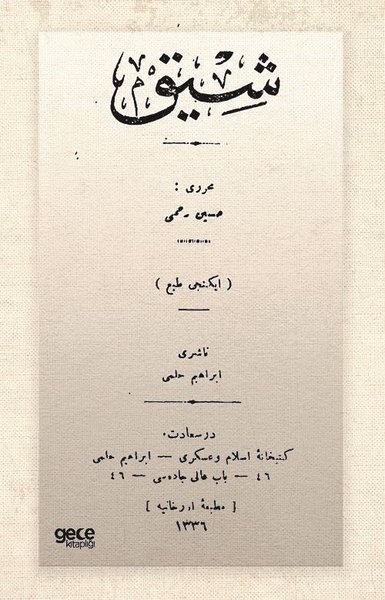 شيق
محررى :
حسين رحمى
( ايكنجى طبع )
ناشرى
ابراهيم حلمى
درسعادت.
كتبخانهٔ اسلام وعسكرى — ابراهيم حلمى
٤٦ — باب عالى جاده‌سى — ٤٦
[ مطبعهٔ اورخانيه ]
١٣٣٦
gece
kitaplığı